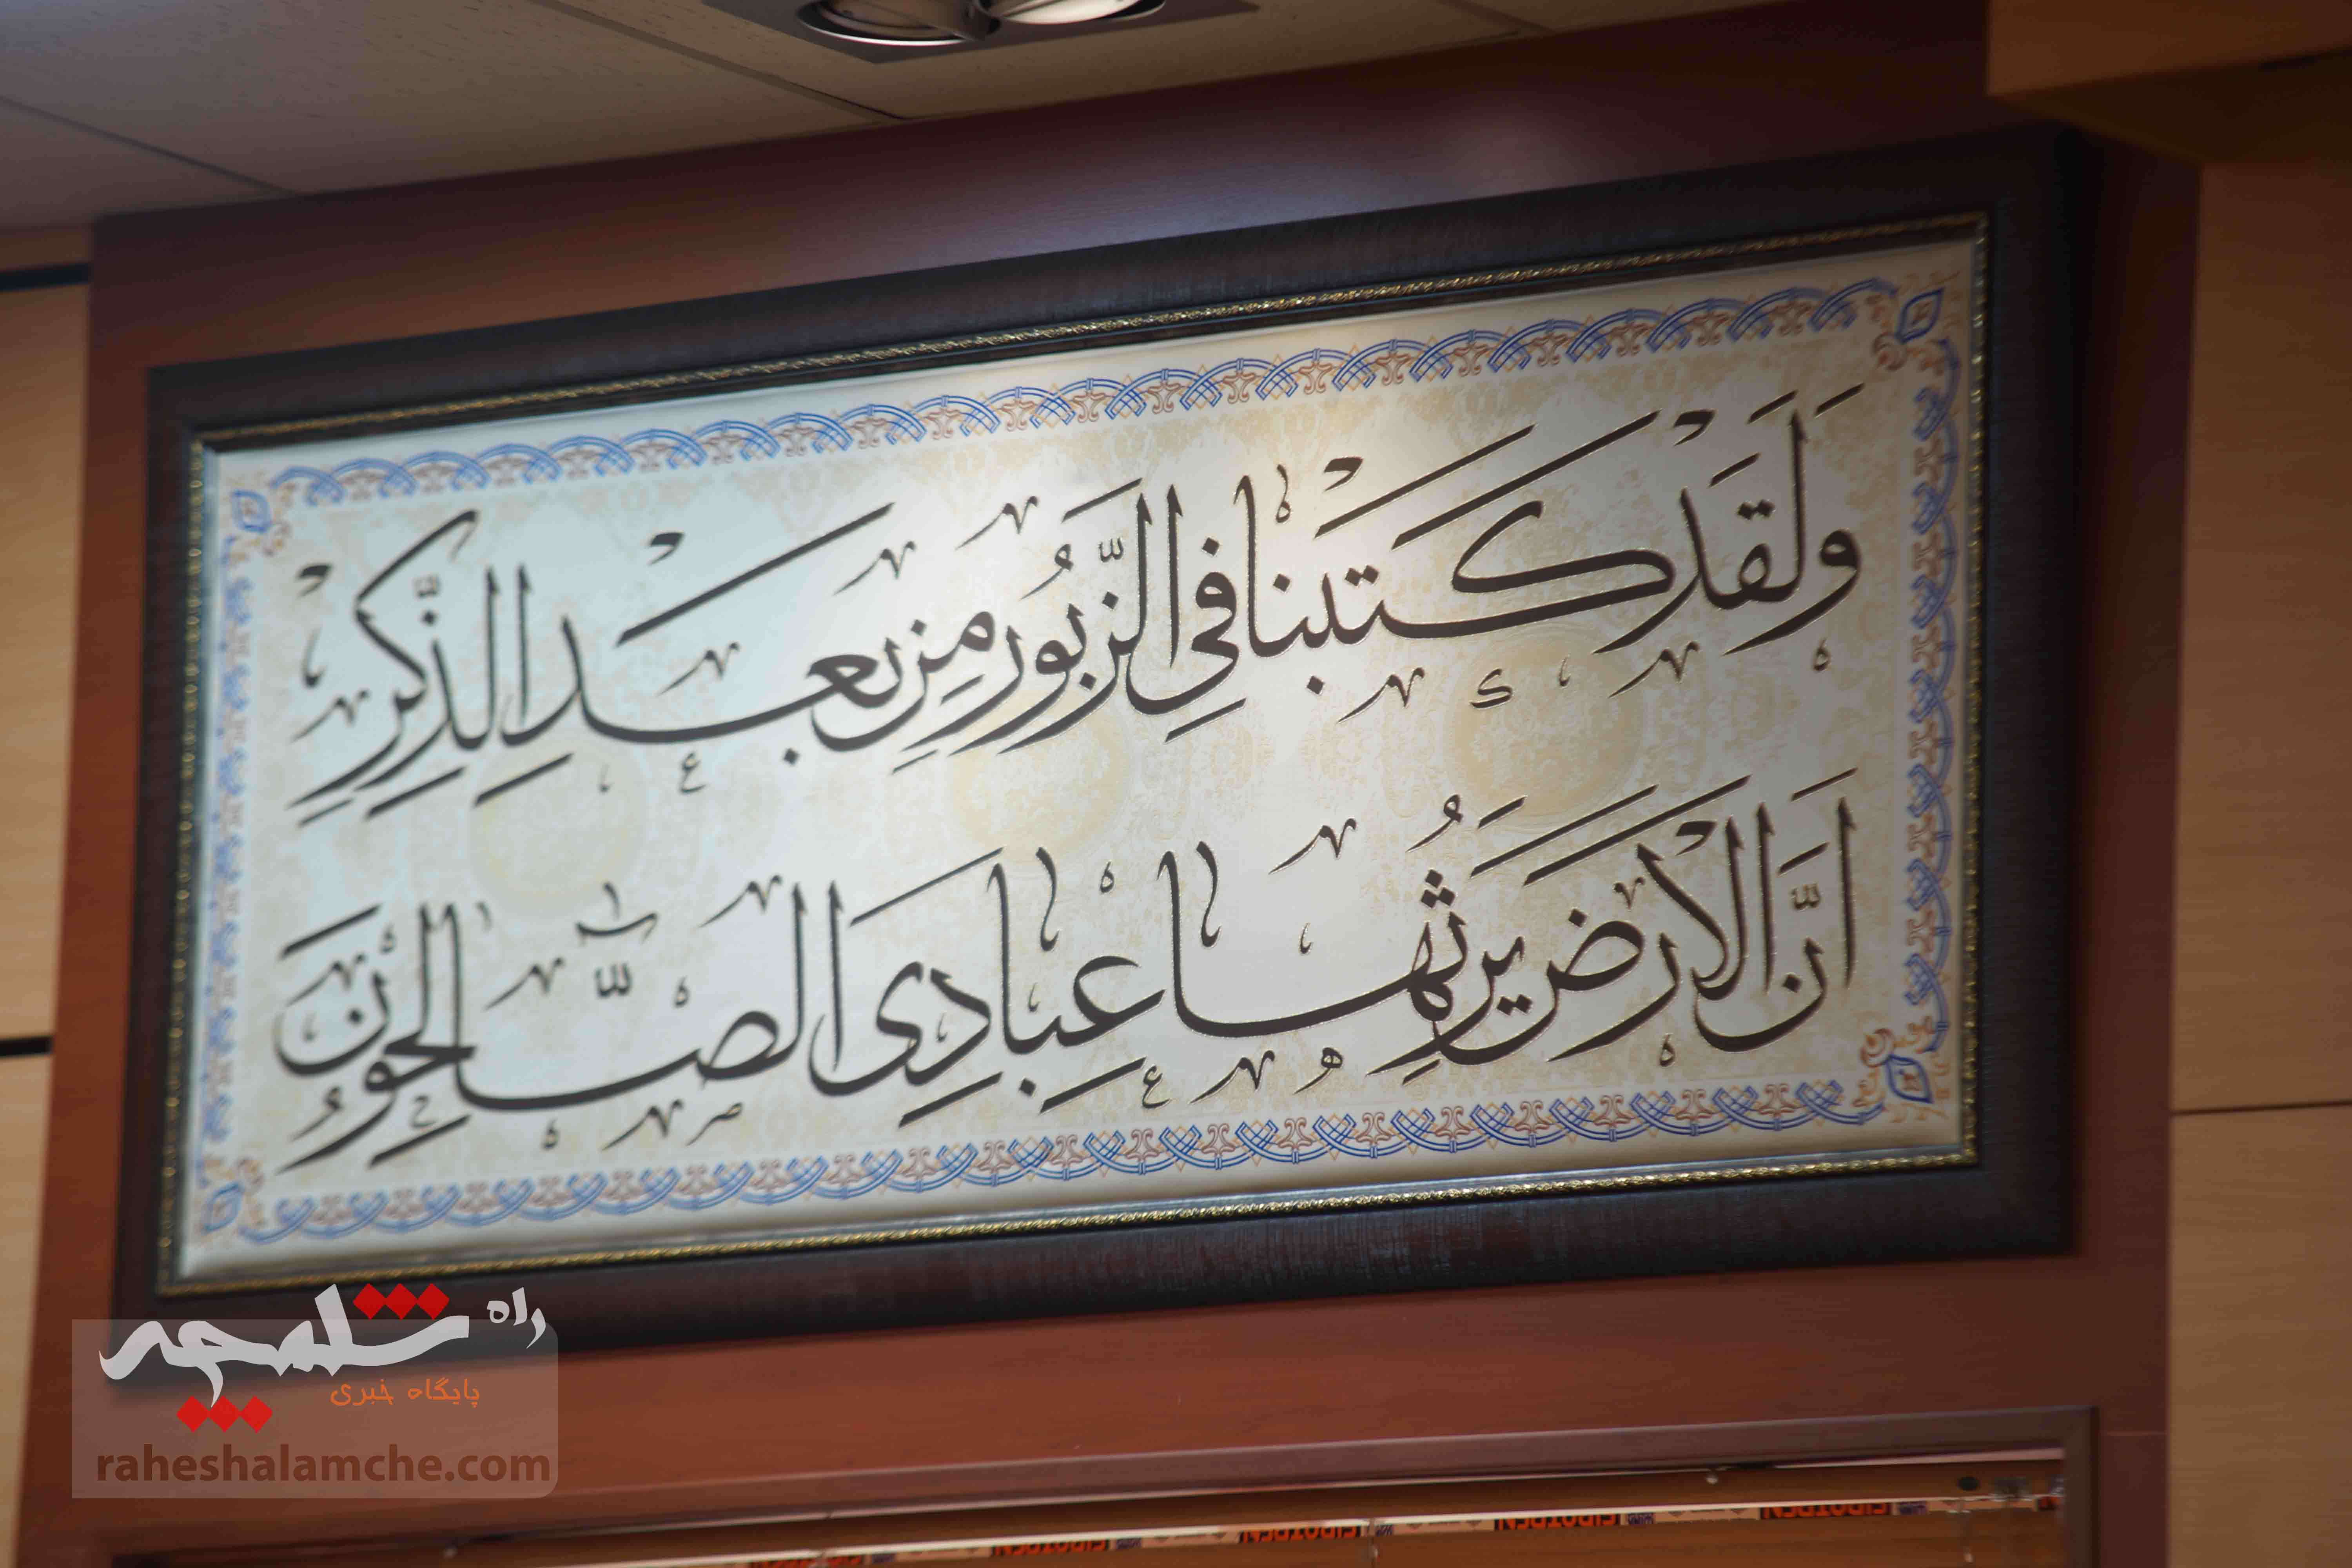 وَلَقَدْ كَتَبْنا فِي الزَّبُورِ مِنْ بَعْدِ الذِّكْرِ
أَنَّ الْأَرْضَ يَرِثُها عِبادِيَ الصَّالِحُونَ
راه شلمچه
پایگاه خبری
raheshalamche.com